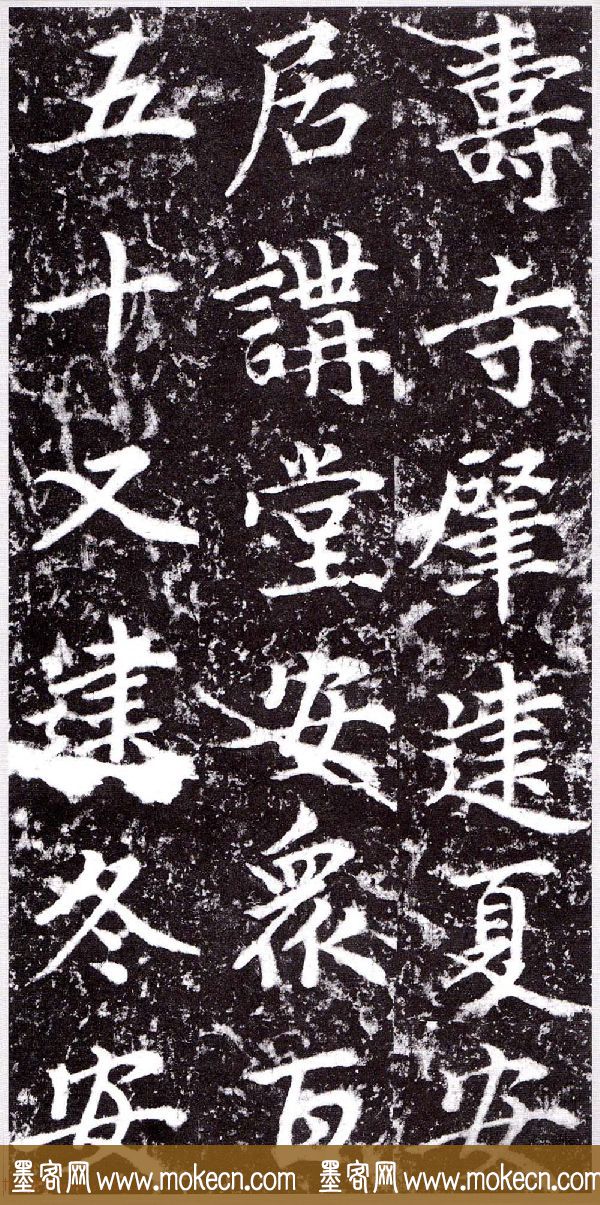 壽寺肇建夏安
居講堂安衆百
五十又建冬安
墨客网 www.mokecn.com 墨客网 www.mokecn.com